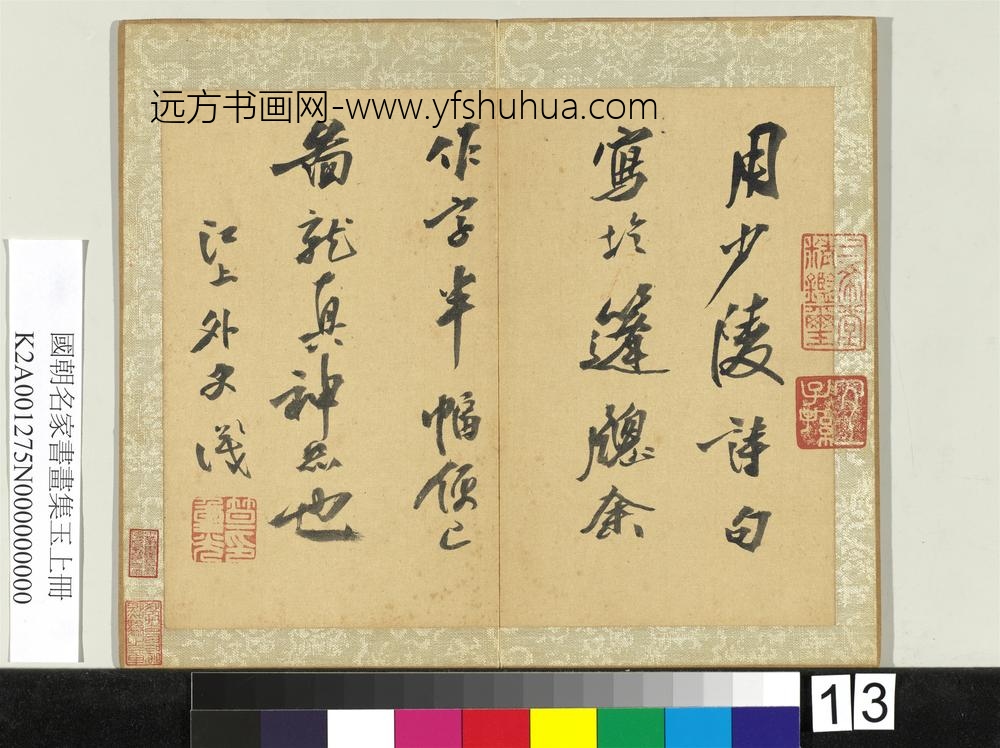 远方书画网-www.yfshuhua.com
用少陵詩句
寫於篷牕余
作字半幅便已
着龍真神品也
江上外史識
三希堂精鑑璽
宜子孫
國朝名家書畫集玉上冊
K2A001275N000000000
13